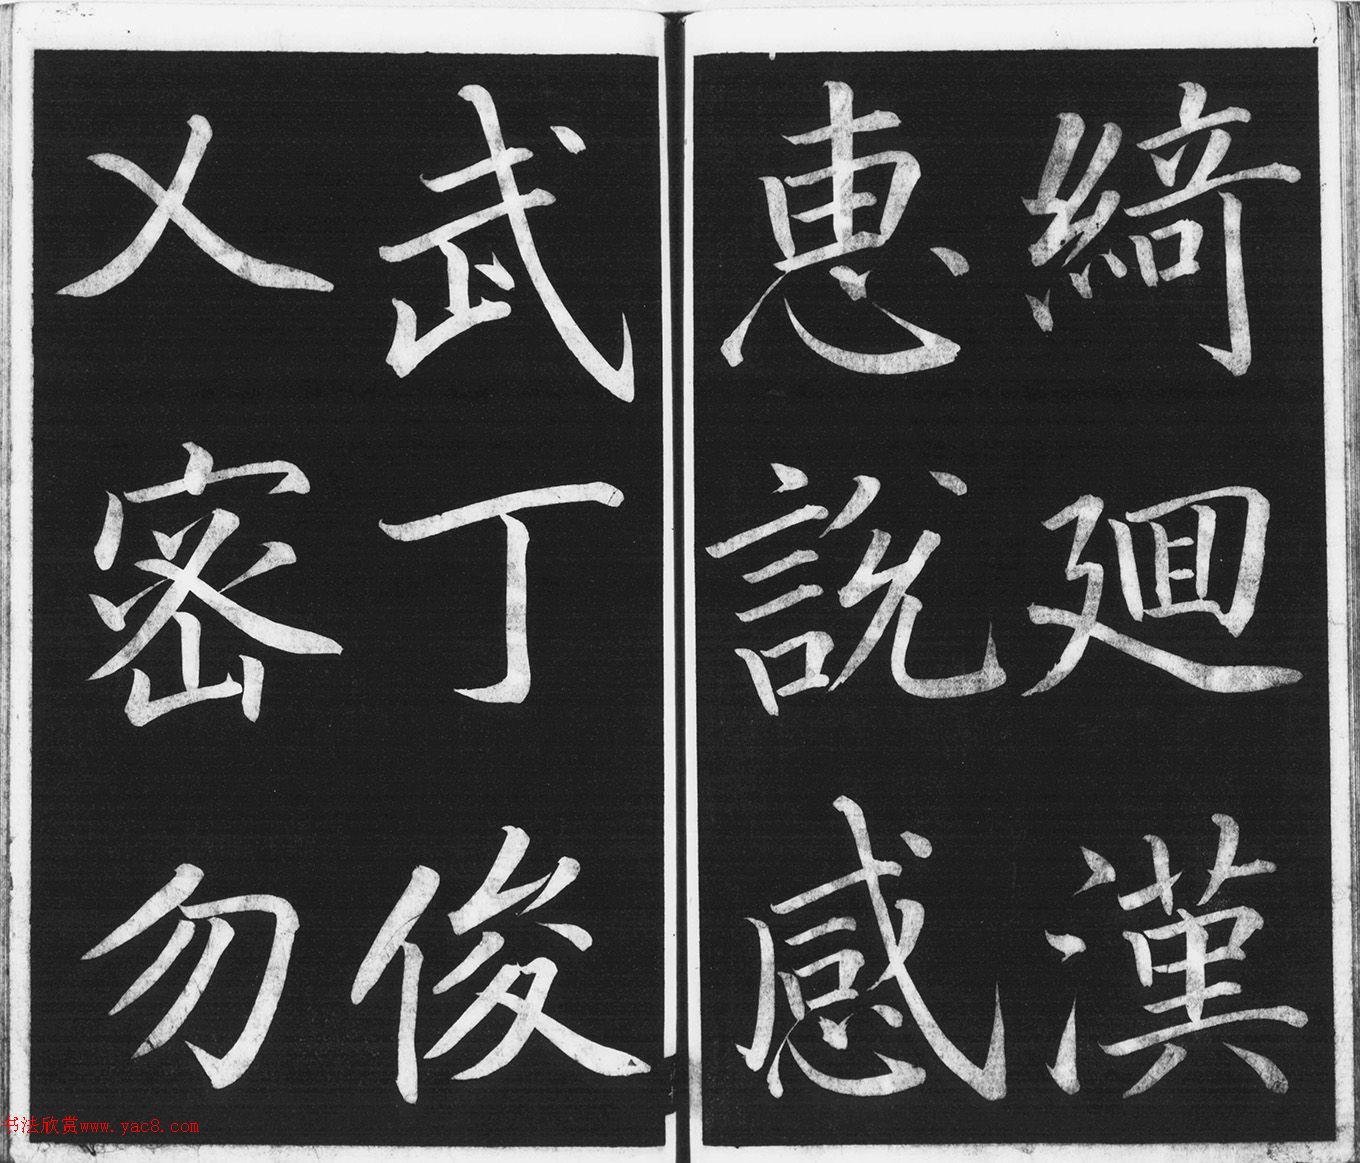 綺迴漢
惠說感
武丁俊
乂密勿
书法欣赏www.yac8.com